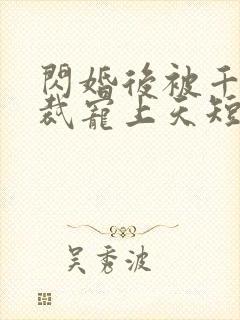 閃婚後被千
裁寵上天短
吳秀波